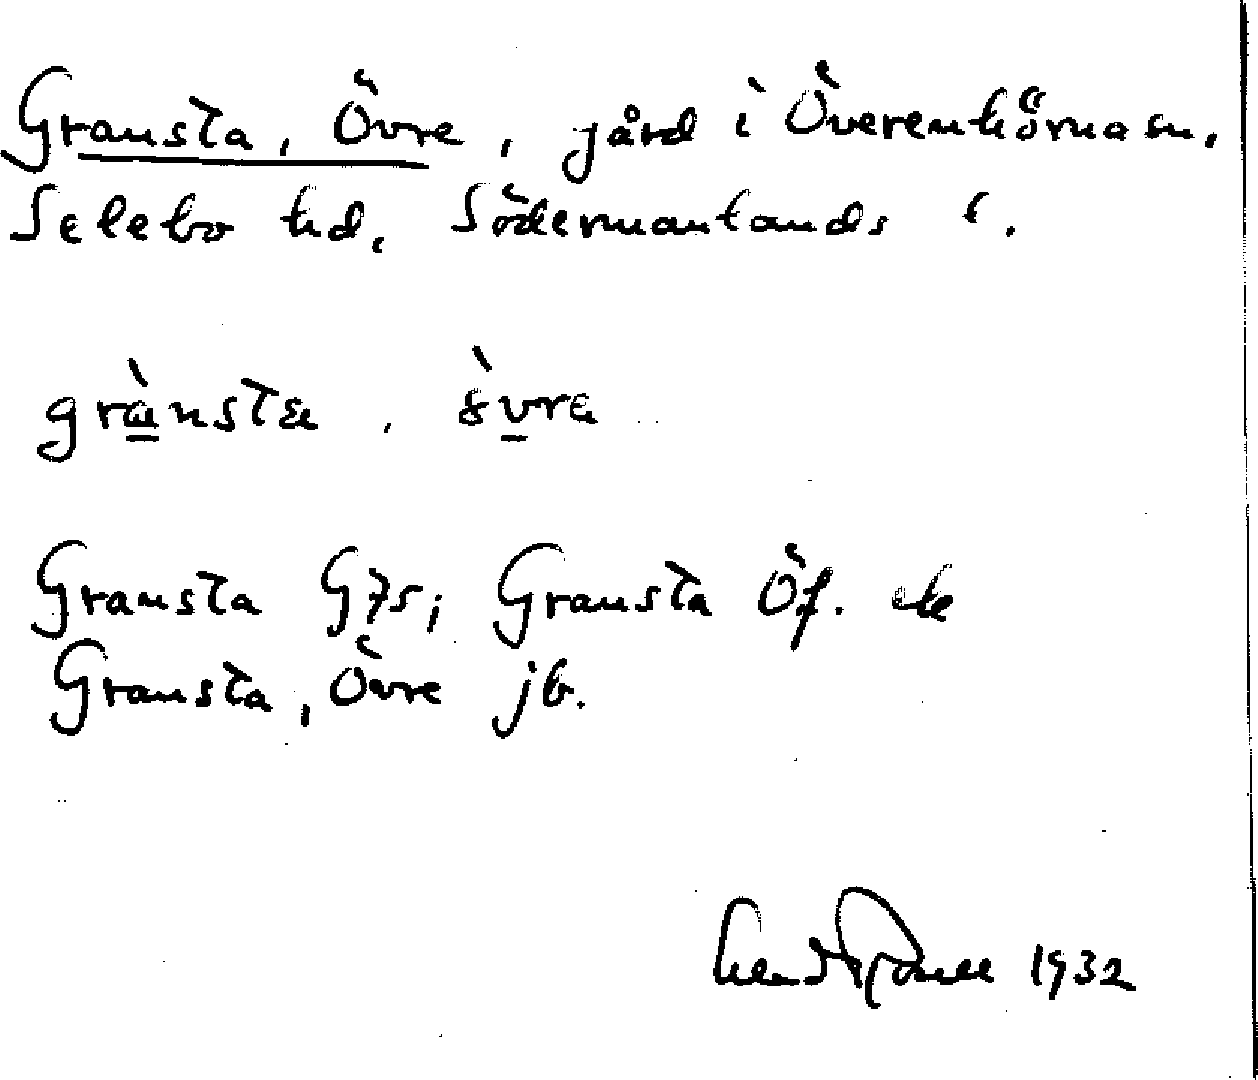 Gransta, Övre, gård i Överenhörna sn.
Selebo hd, Södermanlands l.
grànsta, òvra
Gransta G75; Gransta Öf. ek
Gransta, Övre jb.
1932